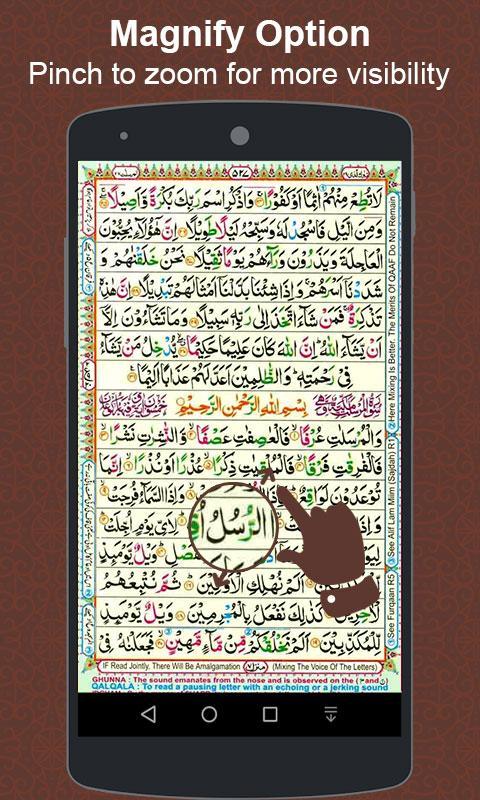 Magnify Option
Pinch to zoom for more visibility
٥٢٧
لَا تُطِعْ مِنْهُمْ اٰثِمًا اَوْ كَفُوْرًا وَاذْكُرِ اسْمَ رَبِّكَ بُكْرَةً وَّاَصِيْلًا
وَمِنَ الَّيْلِ فَاسْجُدْ لَهٗ وَسَبِّحْهُ لَيْلًا طَوِيْلًا اِنَّ هٰٓؤُلَآءِ يُحِبُّوْنَ
الْعَاجِلَةَ وَيَذَرُوْنَ وَرَآءَهُمْ يَوْمًا ثَقِيْلًا نَحْنُ خَلَقْنٰهُمْ وَ
شَدَدْنَآ اَسْرَهُمْ وَاِذَا شِئْنَا بَدَّلْنَآ اَمْثَالَهُمْ تَبْدِيْلًا اِنَّ هٰذِهٖ
تَذْكِرَةٌ فَمَنْ شَآءَ اتَّخَذَ اِلٰى رَبِّهٖ سَبِيْلًا وَمَا تَشَآءُوْنَ اِلَّآ
اَنْ يَّشَآءَ اللّٰهُ اِنَّ اللّٰهَ كَانَ عَلِيْمًا حَكِيْمًا يُّدْخِلُ مَنْ يَّشَآءُ
فِيْ رَحْمَتِهٖ وَالظّٰلِمِيْنَ اَعَدَّ لَهُمْ عَذَابًا اَلِيْمًا
بِسْمِ اللّٰهِ الرَّحْمٰنِ الرَّحِيْمِ
وَالْمُرْسَلٰتِ عُرْفًا فَالْعٰصِفٰتِ عَصْفًا وَّالنّٰشِرٰتِ نَشْرًا
فَالْفٰرِقٰتِ فَرْقًا فَالْمُلْقِيٰتِ ذِكْرًا عُذْرًا اَوْ نُذْرًا اِنَّمَا
تُوْعَدُوْنَ لَوَاقِعٌ وَاِذَا السَّمَآءُ فُرِجَتْ
الرُّسُلُ
لِاَيِّ يَوْمٍ اُجِّلَتْ
وَيْلٌ يَّوْمَئِذٍ
اَلَمْ نُهْلِكِ الْاَوَّلِيْنَ ثُمَّ نُتْبِعُهُمُ
الْاٰخِرِيْنَ كَذٰلِكَ نَفْعَلُ بِالْمُجْرِمِيْنَ وَيْلٌ يَّوْمَئِذٍ
لِّلْمُكَذِّبِيْنَ اَلَمْ نَخْلُقْكُّمْ مِّنْ مَّآءٍ مَّهِيْنٍ فَجَعَلْنٰهُ فِيْ
IF Read Jointly, There Will Be Amalgamation (Mixing The Voice Of The Letters)
GHUNNA : The sound emanates from the nose and is observed on the
QALQALA : To read a pausing letter with an echoing or a jerking sound
See Furqaan R5 See Alif Lam Miim (Sajdah) R1 Here Mixing Is Better. The Merits Of QAAF Do Not Remain